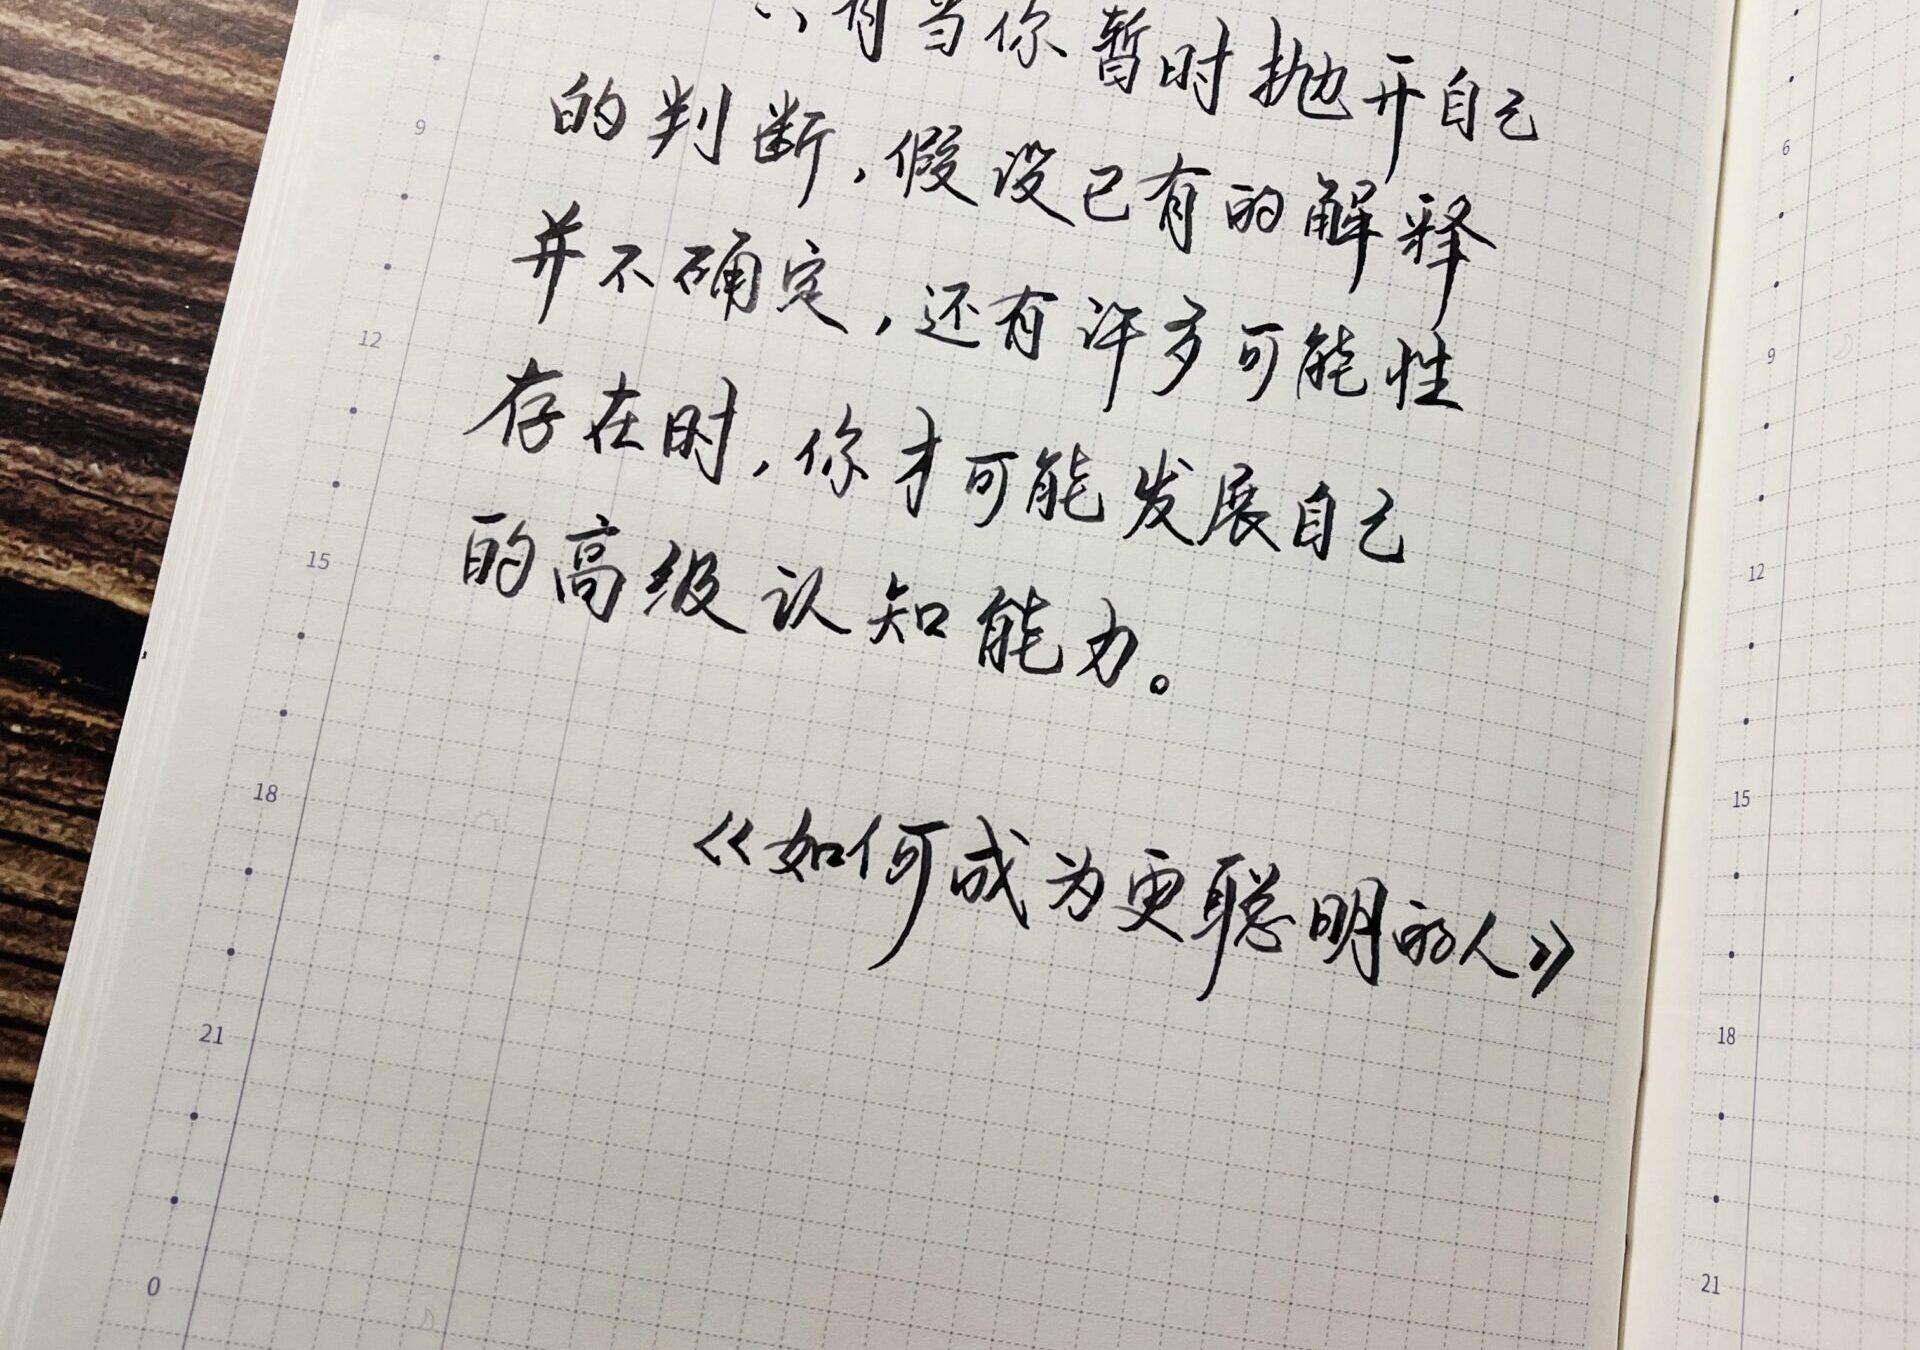 只有当你暂时抛开自己
的判断，假设已有的解释
并不确定，还有许多可能性
存在时，你才可能发展自己
的高级认知能力。
《如何成为更聪明的人》
9
12
15
18
21
0
6
9
12
15
18
21